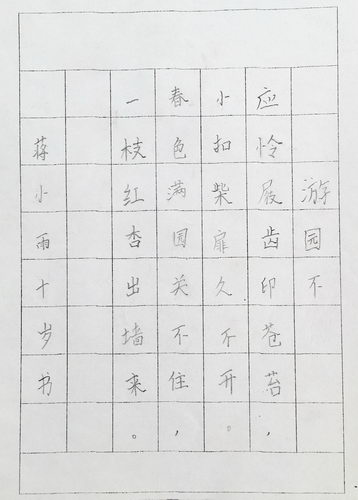 游园不
应怜屐齿印苍苔，
小扣柴扉久不开。
春色满园关不住，
一枝红杏出墙来。
蒋小雨十岁书